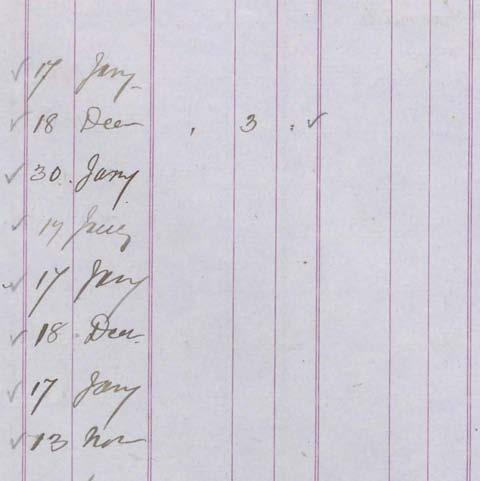 ✓ 17 Jany
✓ 18 Decr . 3 . ✓
✓ 30. Jany
✓ 17 Jany
✓ 17 Jany
✓ 18 Decr
✓ 17 Jany
✓ 13 Nov